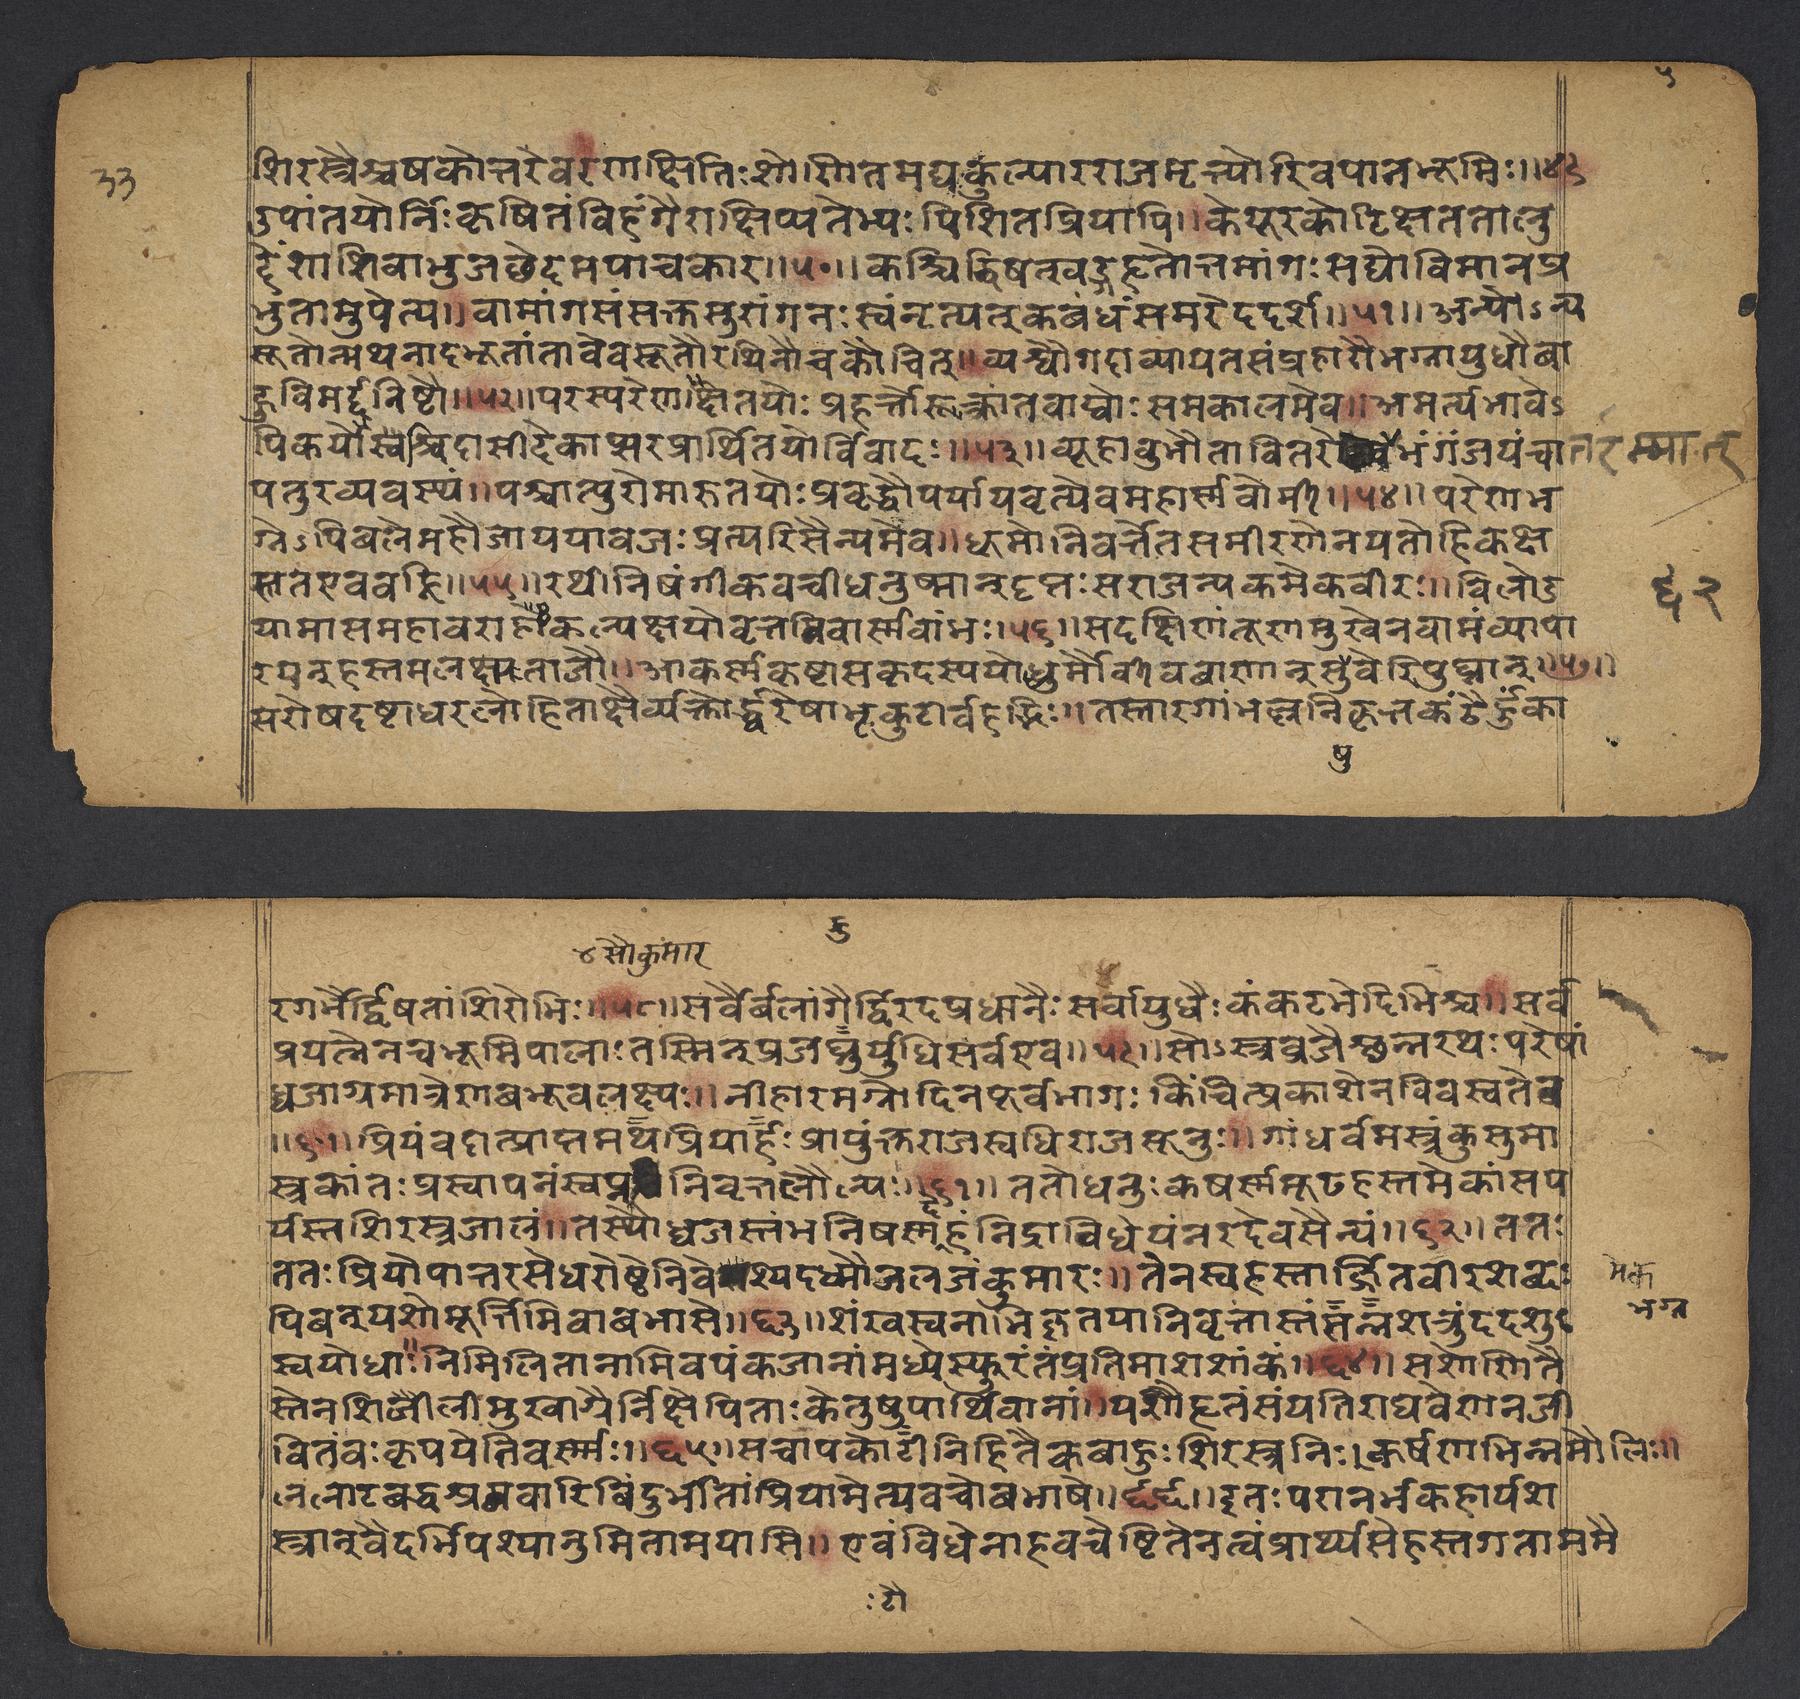 ५
33
शिरस्त्रैश्चषकोत्तरेव रणक्षितिः शोणितमद्यकुल्या रराज मृत्योरिव पानभूमिः ॥४९
उपांतयोर्निः कृषितं विहंगैराक्षिप्य तेभ्यः पिशितप्रियापि ॥ केयूरकोटिक्षततालु
देशा शिवा भुजछेदमपाचकार ॥५०॥ कश्चिद्विषत्खड्गहृतोत्तमांगः सद्यो विमानप्र
भुतामुपेत्य ॥ वामांगसंसक्तसुरांगनः स्वं नृत्यत्कबंधं समरे ददर्श ॥५१॥ अन्योऽन्य
सूतोन्मथनादभूतां तावेव सूतौ रथिनौ च कौचित् ॥ व्यश्वौ गदाव्यायतसंप्रहारौ भग्नायुधौ बा
हुविमर्द्दनिष्टौ ॥५२॥ परस्परेण क्षितयोः प्रहर्त्तोरुत्क्रांतवाय्वोः समकालमेव ॥ अमर्त्यभावेऽ
पि कयोश्चिदासीदेकाप्सरःप्रार्थितयोर्विवादः ॥५३॥ व्यूहावुभौ तावितरे भंगं जयं चा
पतुरव्यवस्थं ॥ पश्चात्पुरोमारुतयोः प्रवृद्धौ पर्यायवृत्त्येव महार्स्मवोर्मी ॥५४॥ परेण भ
ग्नेऽपि बले महौजा ययावजः प्रत्यरिसैन्यमेव ॥ धूमो निवर्त्तेत समीरणेन यतो हि कक्ष
स्तत एव वह्निः ॥५५॥ रथी निषंगी कवची धनुष्मान् दृप्तः स राजन्यकमेकवीरः ॥ विलोड
यामास महावराहः कल्पक्षयोवृत्तमिवार्स्मवांभः ॥५६॥ स दक्षिणं तूणमुखेन वामं व्यापा
रयन् हस्तमलक्ष्यताजौ ॥ आकर्स्मकृष्टा सकृदस्य योधुर्मौर्वीव बाणान् सुषुवे रिपुघ्नान् ॥५७॥
सरोषदष्टाधरलोहिताक्षैर्व्यक्तोर्द्ध्वरेषा भृकुटीर्वहद्भिः ॥ तस्तार गां भल्लनिकृत्तकंठैर्हुंका
षु
६२
४ सौकुमार
रगर्भैर्द्विषतां शिरोभिः ॥५८॥ सर्वैर्बलांगैर्द्विरदप्रधानैः सर्वायुधैः कंकटभेदिभिश्च ॥ सर्व
प्रयत्नेन च भूमिपालाः तस्मिन् प्रजघ्नुर्युधि सर्व एव ॥५९॥ सोऽस्त्रव्रजैश्छन्नरथः परेषां
ध्वजाग्रमात्रेण बभूव लक्ष्यः ॥ नीहारमग्नो दिनपूर्वभागः किंचित्प्रकाशेन विवस्वतेव
॥६०॥ प्रियंवदात्प्राप्तमथ प्रियार्हः प्रायुंक्त राजस्वधिराजसूनुः ॥ गांधर्वमस्त्रं कुसुमा
स्त्रकांतः प्रस्वापनं स्वप्ननिवृत्तलौल्यः ॥६१॥ ततो धनुःकषर्स्ममूढहस्तमेकांसप
र्यस्तशिरस्त्रजालं ॥ तस्थौ ध्वजस्तंभनिषस्मदेहं निद्राविधेयं नरदेवसैन्यं ॥६२॥ ततः
ततः प्रियोपात्तरसेधरोष्ठे निवेश्य दध्मौ जलजं कुमारः ॥ तेन स्वहस्तार्ज्जितवीरशब्दः
पिबन् यशो मूर्त्तिमिवाबभासे ॥६३॥ शंखस्वनाभिज्ञतया निवृत्तास्तं सन्नशत्रुं ददृशुः
स्वयोधाः निमिलितानामिव पंकजानां मध्ये स्फुरंतं प्रतिमाशशांकं ॥६४॥ सशोणितै
स्तेन शिलीमुखाग्रैर्निक्षेपिताः केतुषु पार्थिवानां ॥ यशो हृतं संयति राघवेण न जी
वितं वः कृपयेति वर्स्माः ॥६५॥ स चापकोटीनिहितैकबाहुः शिरस्त्रनिःकर्षणभिन्नमौलिः ॥
ललाटबद्धश्रमवारिबिंदुर्भीतां प्रियामेत्य वचो बभाषे ॥६६॥ इतः परानर्भकहार्यश
स्त्रान् वैदर्भि पश्यानुमिता मयासि ॥ एवंविधेनाहवचेष्टितेन त्वं प्रार्थ्यसे हस्तगता ममै
भग्न
ः टो